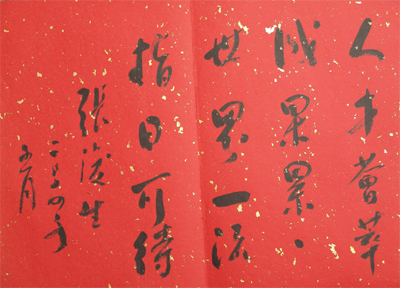 人才薈萃
成果累、
世界一流
指日可待
張浚生
二〇〇四年
五月